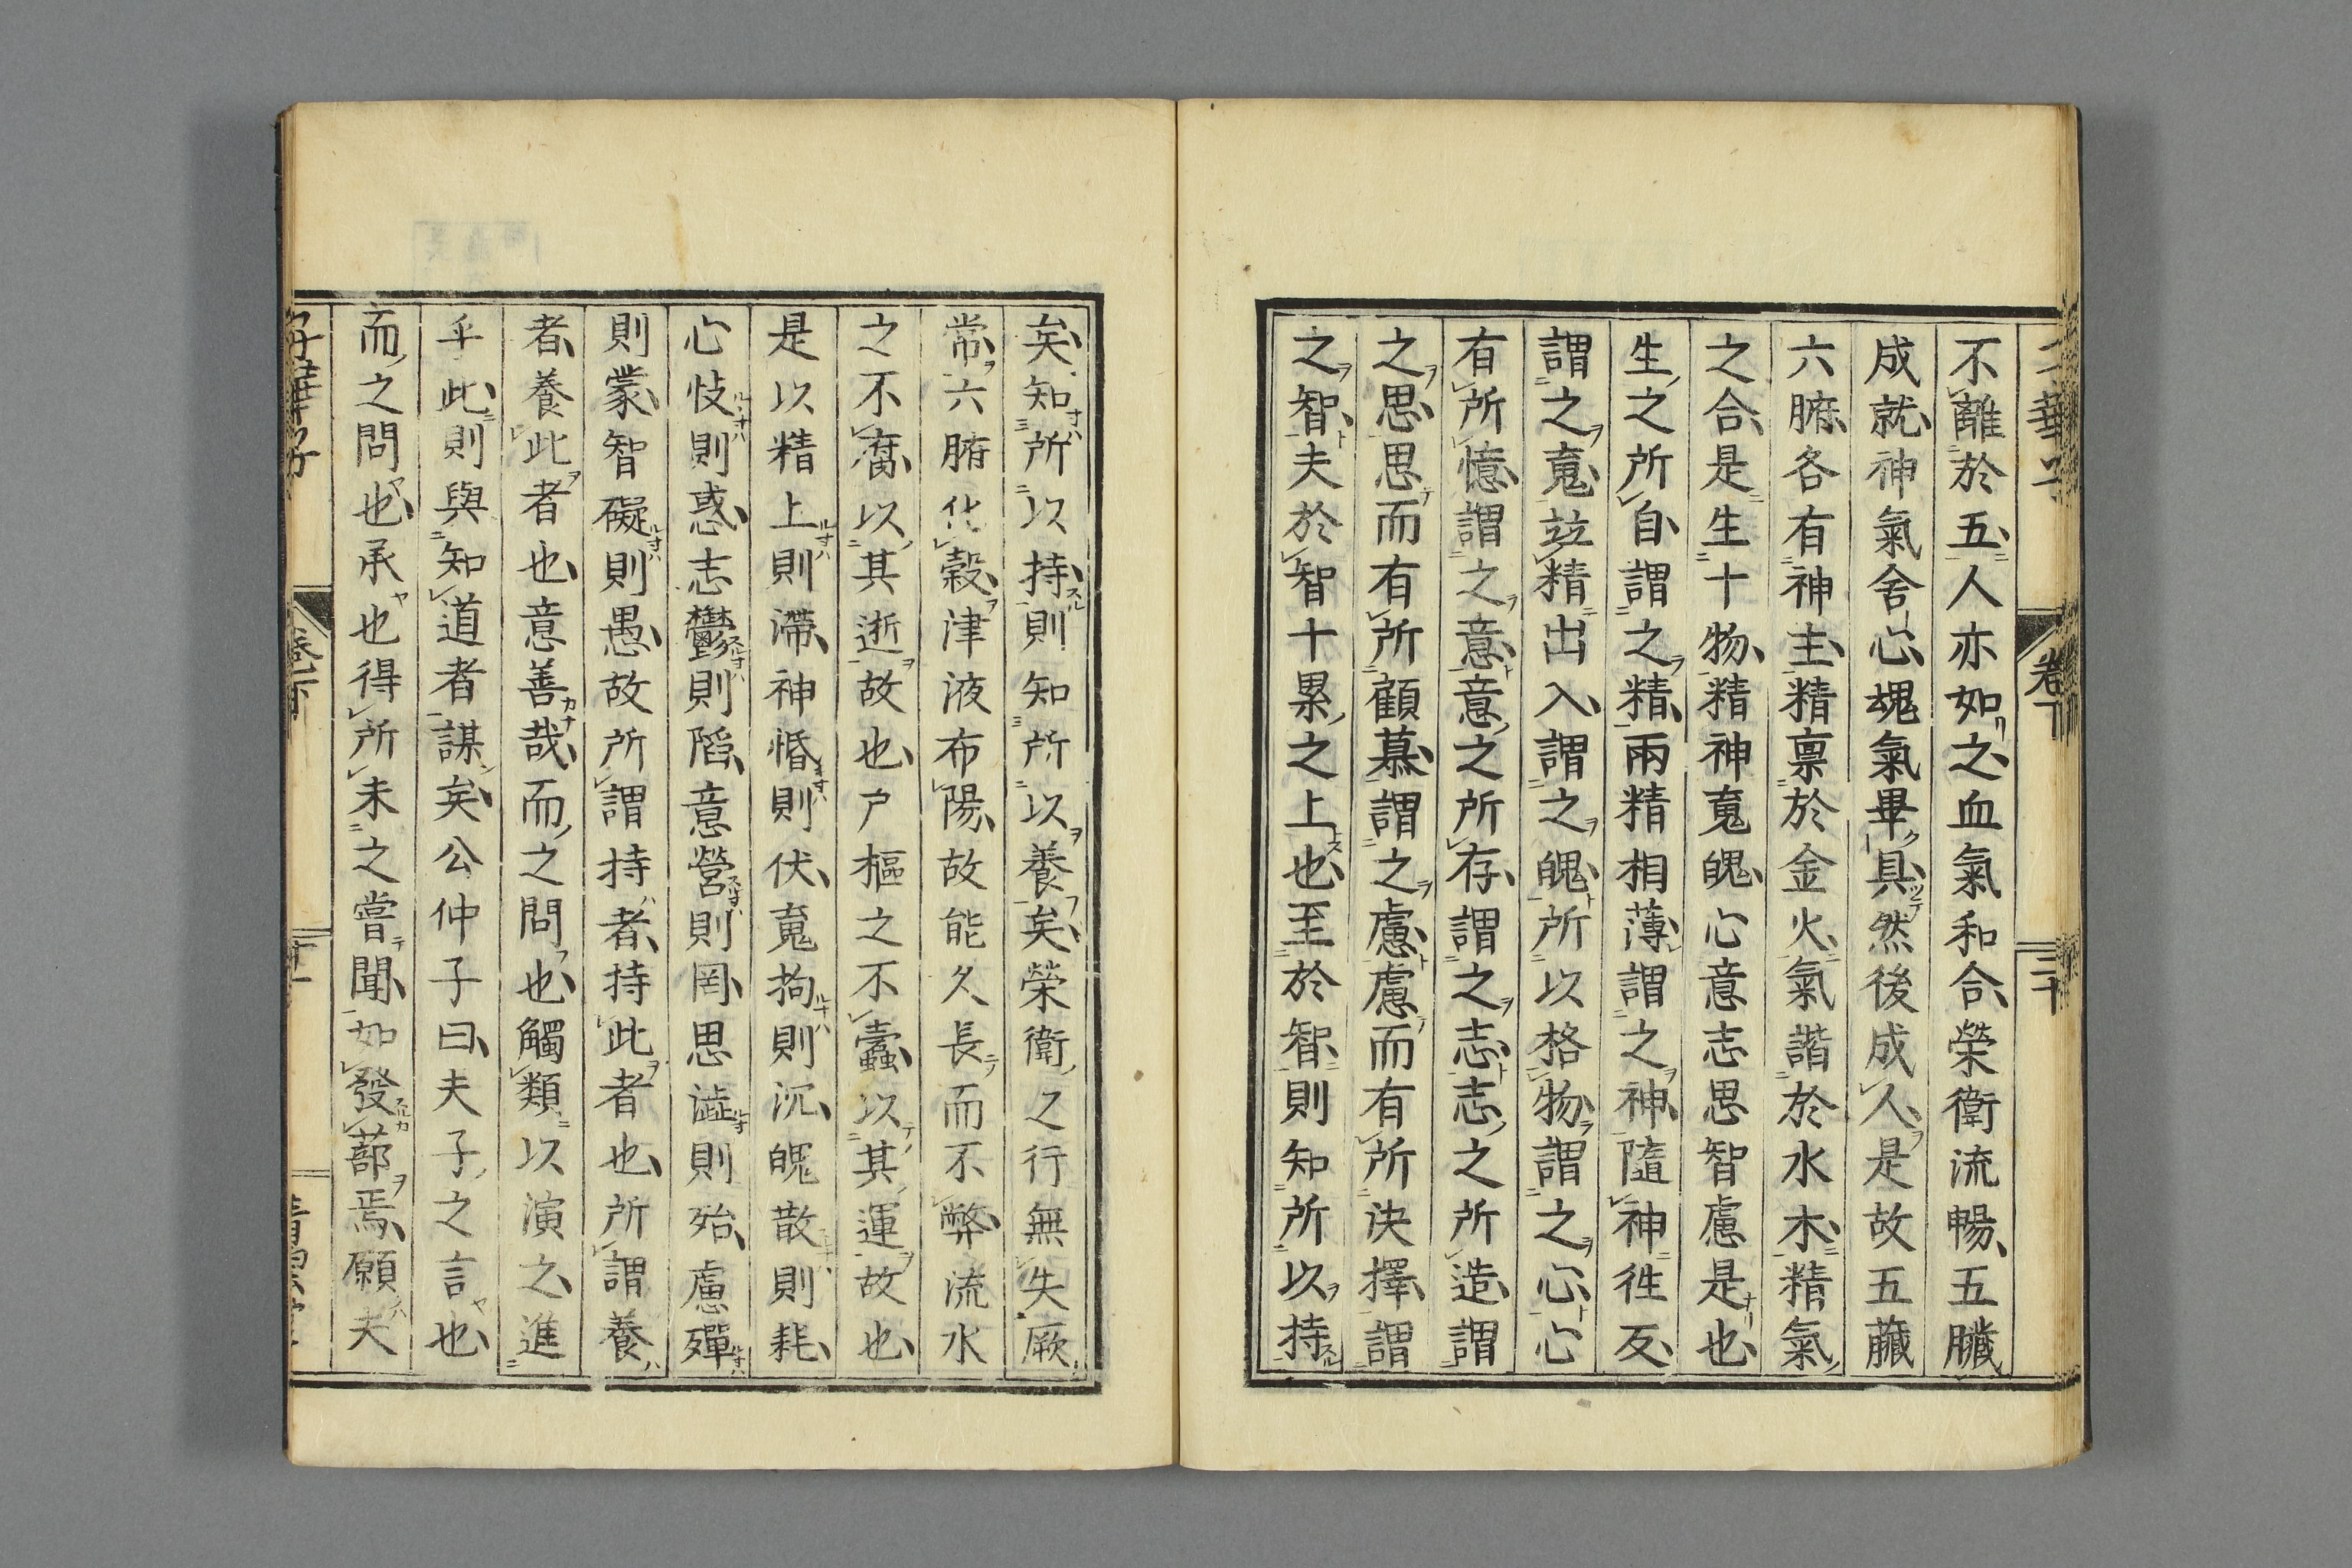 不離於五人亦如之血氣和合榮衛流暢五臓
成就神氣舎心魂氣畢具然後成人是故五藏
六腑各有神主精禀於金火氣諧於水木精氣
之合是生十物精神䰟魄心意志思智慮是也
生之所自謂之精兩精相薄謂之神隨神徃反
謂之䰟竝精出入謂之魄所以格物謂之心心
有所憶謂之意意之所存謂之志志之所造謂
之思思而有所顧慕謂之慮慮而有所決擇謂
之智夫於智十累之上也至於智則知所以持
矣知所以持則知所以養矣榮衛之行無失厥
常六腑化穀津液布陽故能久長而不弊流水
之不腐以其逝故也戸樞之不蠹以其運故也
是以精上則滯神惛則伏䰟拘則沉魄散則耗
心忮則惑志鬱則陷意營則罔思澁則殆慮殫
則蒙智礙則愚故所謂持者持此者也所謂養
者養此者也意善哉而之問也觸類以演之進
乎此則與知道者謀矣公仲子曰夫子之言也
而之問也承也得所未之嘗聞如發蔀焉願夫
卷下